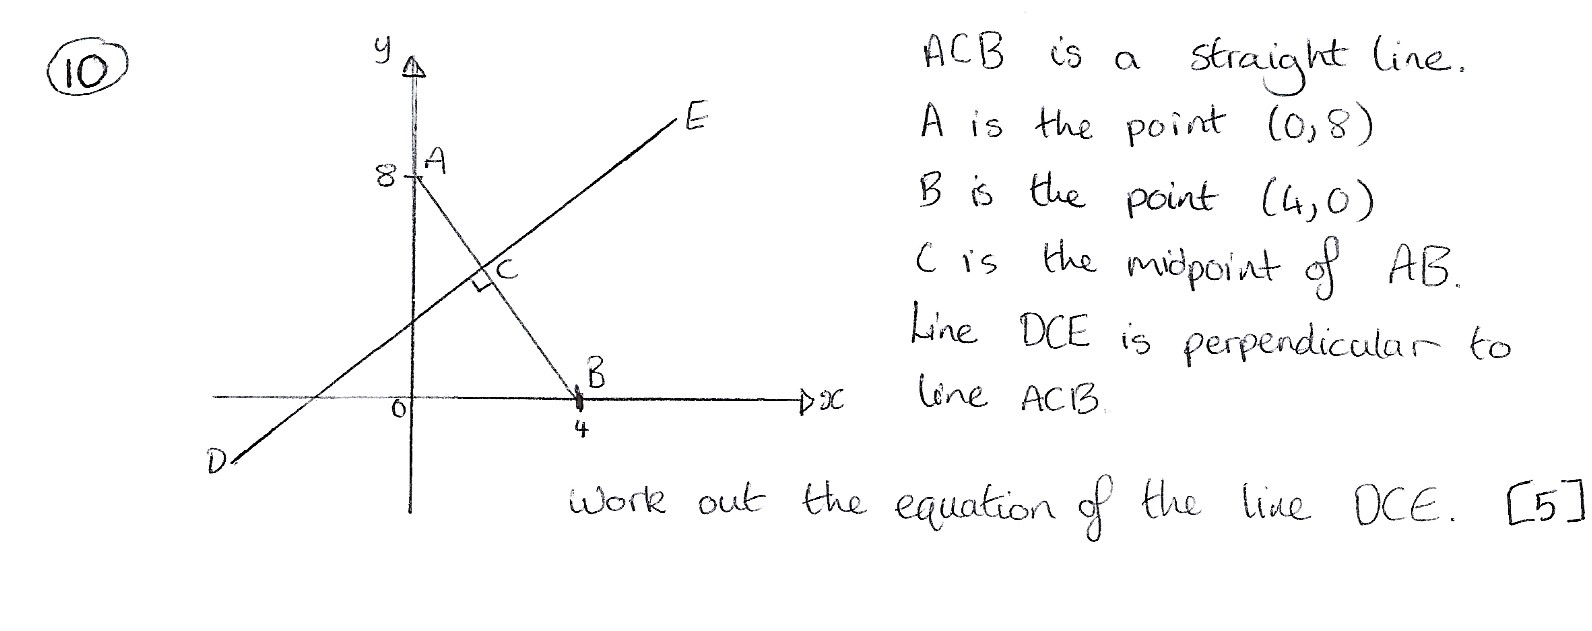 10
y
E
8
A
C
B
0
x
4
D
ACB is a straight line.
A is the point (0,8)
B is the point (4,0)
C is the midpoint of AB.
Line DCE is perpendicular to
line ACB.
Work out the equation of the line DCE. [5]